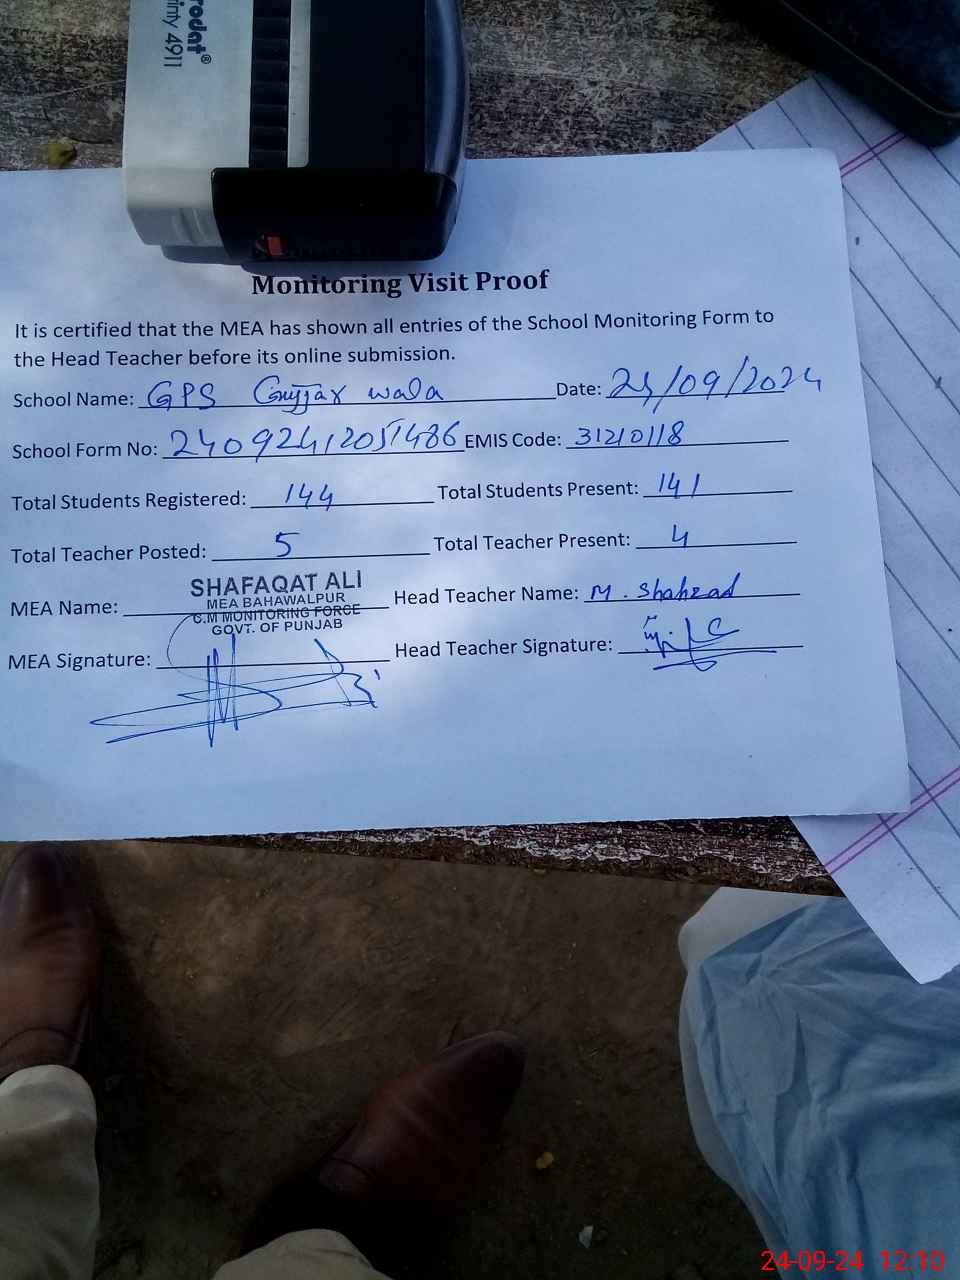 rodat®
4911
Monitoring Visit Proof
It is certified that the MEA has shown all entries of the School Monitoring Form to
the Head Teacher before its online submission.
School Name: GPS Gujjar wala Date: 24/09/2024
School Form No: 24092412051486 EMIS Code: 31210118
Total Students Registered: 144 Total Students Present: 141
Total Teacher Posted: 5 Total Teacher Present: 4
MEA Name: SHAFAQAT ALI Head Teacher Name: M. Shahzad
MEA BAHAWALPUR
C.M MONITORING FORCE
GOVT. OF PUNJAB
MEA Signature: Head Teacher Signature:
24-09-24 12:10